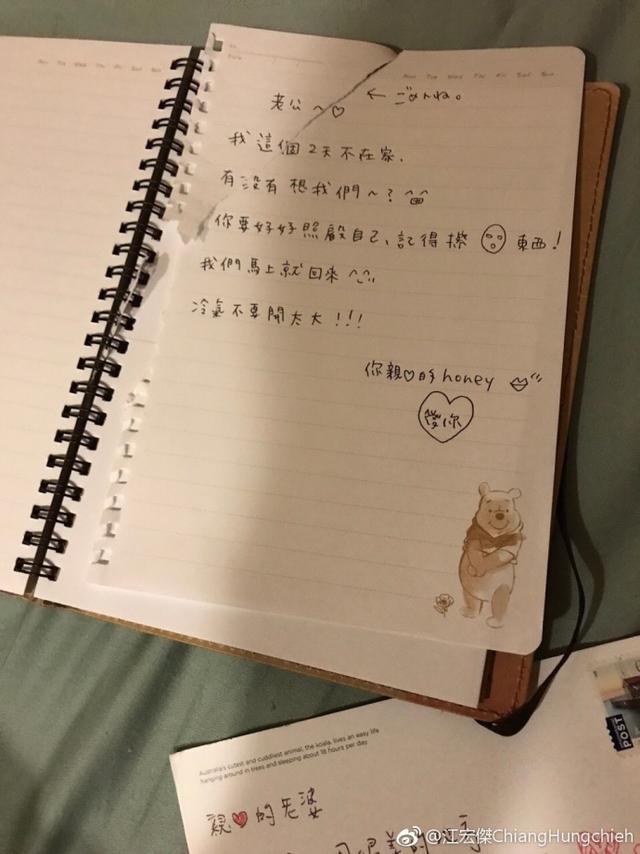 Mon Tue Wed Thu Fri Sat Sun
老公～♡ ← ごめんね。
我這個2天不在家.
有没有想我們～?
你要好好照顧自己、記得擦 東西!
我們馬上就回來^^
冷氣不要開太大!!!
你親♡的honey
愛你
Australia's cutest and cuddliest animal, the koala, lives an easy life
hanging around in trees and sleeping about 18 hours per day.
POST
親♥的老婆
@江宏傑ChiangHungchieh